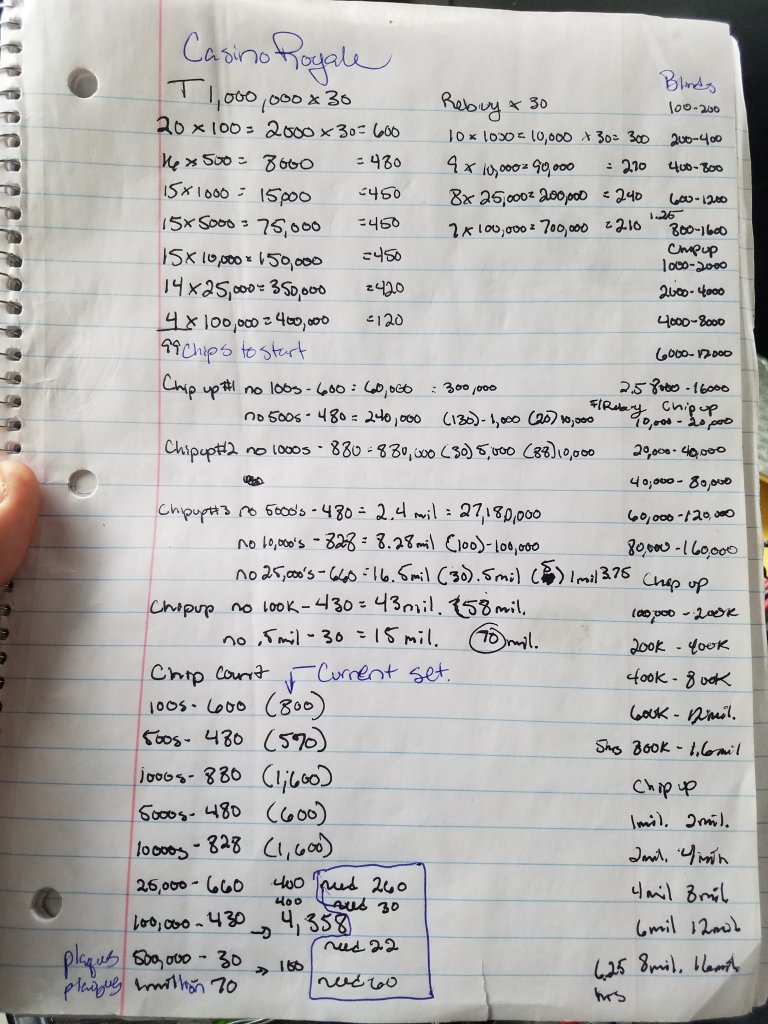 Casino Royale
T 1,000,000 x 30
20 x 100 = 2000 x 30 = 600
16 x 500 = 8000 = 480
15 x 1000 = 15,000 = 450
15 x 5000 = 75,000 = 450
15 x 10,000 = 150,000 = 450
14 x 25,000 = 350,000 = 420
4 x 100,000 = 400,000 = 120
99 Chips to start
Rebuy x 30
10 x 1000 = 10,000 x 30 = 300
9 x 10,000 = 90,000 = 270
8 x 25,000 = 200,000 = 240
7 x 100,000 = 700,000 = 210
Chip up #1 no 100s - 600 = 60,000 = 300,000
no 500s - 480 = 240,000 (130) - 1,000 (20) 10,000
Chipup #2 no 1000s - 880 = 880,000 (30) 5,000 (88) 10,000
Chipup #3 no 5000's - 480 = 2.4 mil = 27,180,000
no 10,000's - 828 = 8.28mil (100) - 100,000
no 25,000's - 660 = 16.5mil (30) .5mil 1mil
Chipup no 100K - 430 = 43mil. 58 mil.
no .5mil - 30 = 15 mil. 70 mil.
Chip count Current set.
100s - 600 (800)
500s - 480 (590)
1000s - 880 (1,600)
5000s - 480 (600)
10000s - 828 (1,600)
25,000 - 660 400 need 260
400 need 30
100,000 - 430 → 4,358
need 22
plaques 500,000 - 30 100
plaques 1million 70 need 60
Blinds
100-200
200-400
400-800
600-1200
1.25 800-1600
Chip up
1000-2000
2000-4000
4000-8000
6000-12000
2.5 8000-16000
F/Rebuy Chip up
10,000-20,000
20,000-40,000
40,000-80,000
60,000-120,000
80,000-160,000
3.75 Chip up
100,000-200K
200K-400K
400K-800K
600K-1.2mil.
5hrs 800K-1.6mil
Chip up
1mil. 2mil.
2mil. 4mil
4mil 8mil
6mil 12mil
6.25 8mil. 16mil
hrs